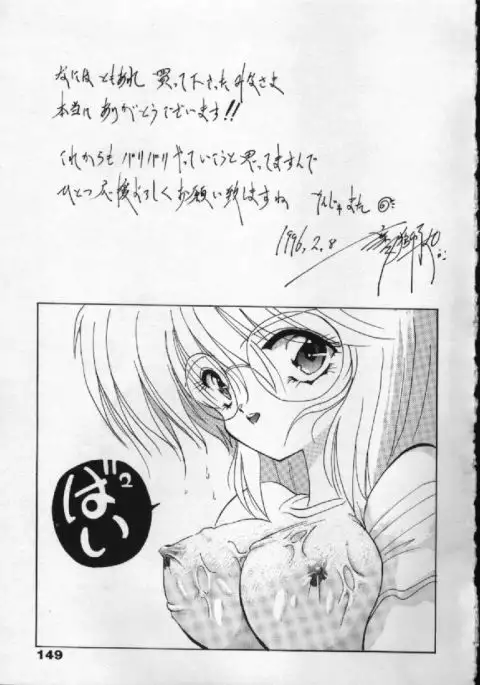 なにはともあれ 買って下さったみなさま
本当に ありがとうございます!!
これからもバリバリやっていこうと思ってますんで
ひとつ応援よろしくお願い致しますね
1996.2.8
ばい2
149